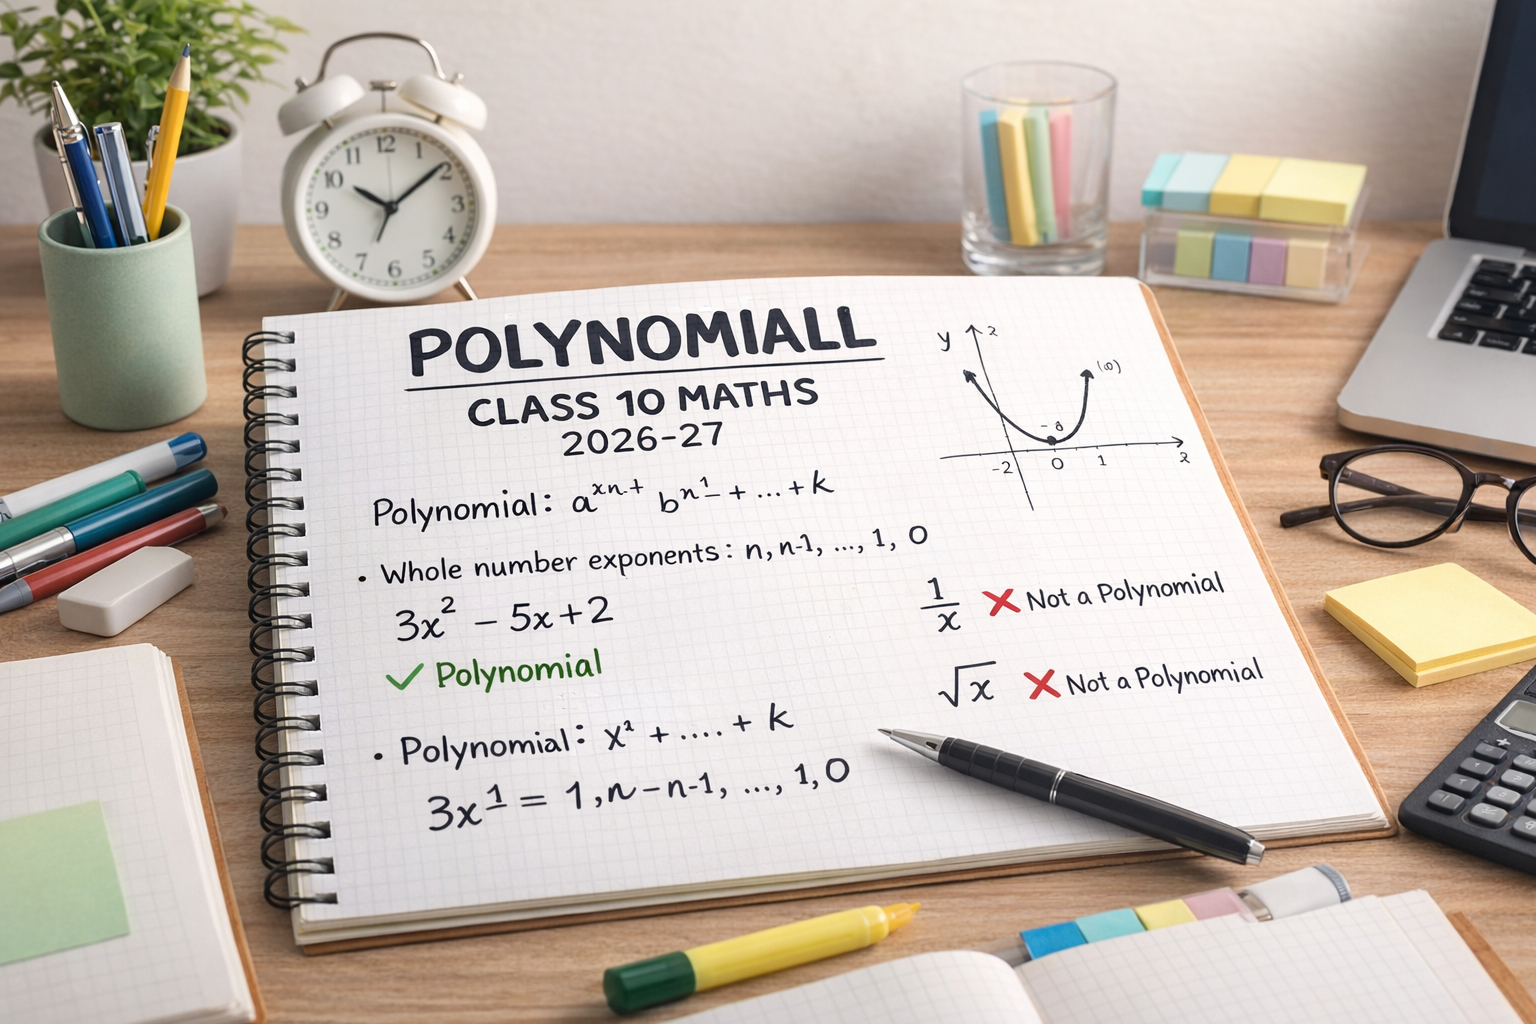 POLYNOMIALL
CLASS 10 MATHS
2026-27
y 2
(0)
-8
-2 0 1 2
Polynomial: a^xn.+ b^n1- + ... + k
• Whole number exponents: n, n-1, ..., 1, 0
3x² - 5x+2
✓ Polynomial
1/x ✗ Not a Polynomial
√x ✗ Not a Polynomial
• Polynomial: x² + .... + k
3x^1 = 1, n - n-1, ..., 1, 0
12 1 2 3 4 5 6 7 8 9 10 11